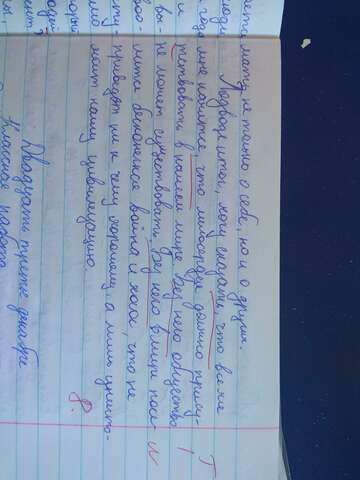 мать не только о себе, но и о других.
Подводя итог, могу сказать, что все же
мне кажется, что милосердие должно прису-
тствовать в нашем мире. Без него общество
не может существовать, без него в мире посе-
лится бесконечная война и хаос, что не
приведет ни к чему хорошему, а лишь уничто-
жит нашу цивилизацию.
8.
Двадцать третье декабря
Классная работа